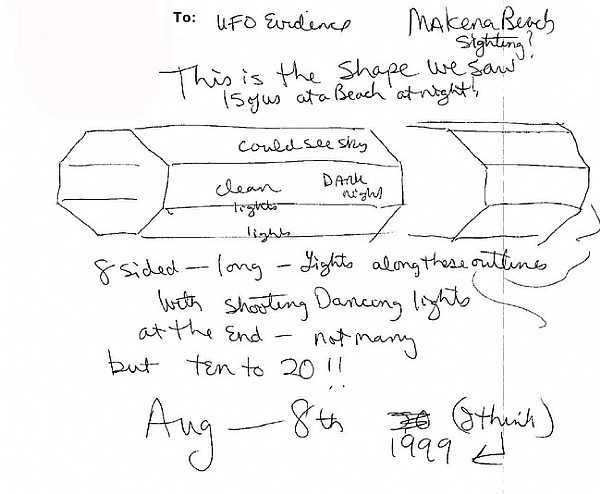 To: UFO Evidence
Makena Beach
Sighting?
This is the shape we saw
15 of us at a Beach at night!
could see sky
clean
DARK
night
lights
lights
8 sided — long — Lights along these outlines
with shooting Dancing lights
at the End — not many
but TEN to 20 !!
Aug — 8th (I think)
1999